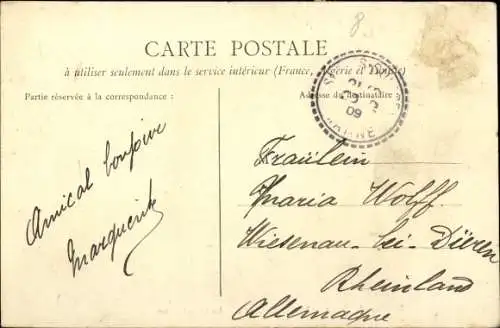 8
CARTE POSTALE
à utiliser seulement dans le service intérieur (France, Algérie et Tunisie)
Partie réservée à la correspondance :
Adresse du destinataire :
09
Amical bonjour
Marguerite
Fräulein
Maria Wolff
Wiesenau-bei-Düren
Rheinland
Allemagne